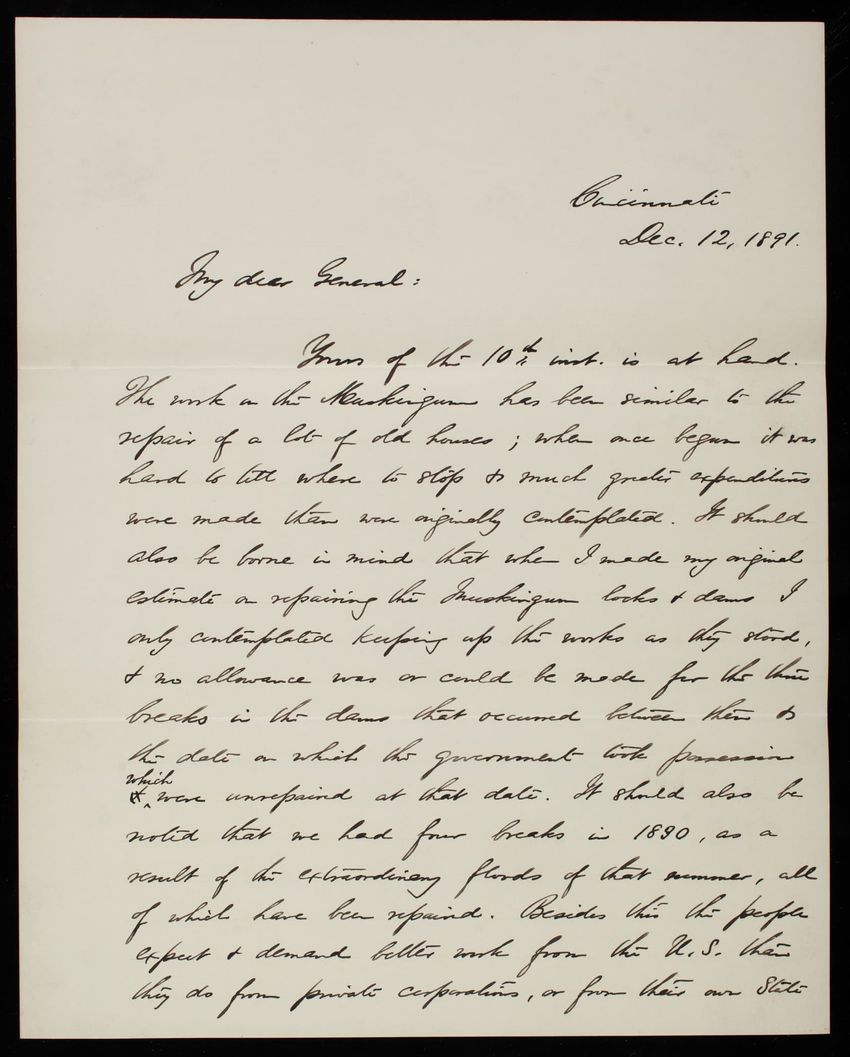 Cincinnati
Dec. 12, 1891.
My dear General:
Yours of the 10th inst. is at hand.
The work on the Muskingum has been similar to the
repair of a lot of old houses; when once begun it was
hard to tell where to stop & much greater expenditures
were made than were originally contemplated. It should
also be borne in mind that when I made my original
estimate on repairing the Muskingum locks & dams I
only contemplated keeping up the works as they stood,
& no allowance was or could be made for the three
breaks in the dams that occurred between then &
the date on which the government took possession
which
& ^ were unrepaired at that date. It should also be
noted that we had four breaks in 1890, as a
result of the extraordinary floods of that summer, all
of which have been repaired. Besides this the people
expect & demand better work from the U.S. than
they do from private corporations, or from their own State